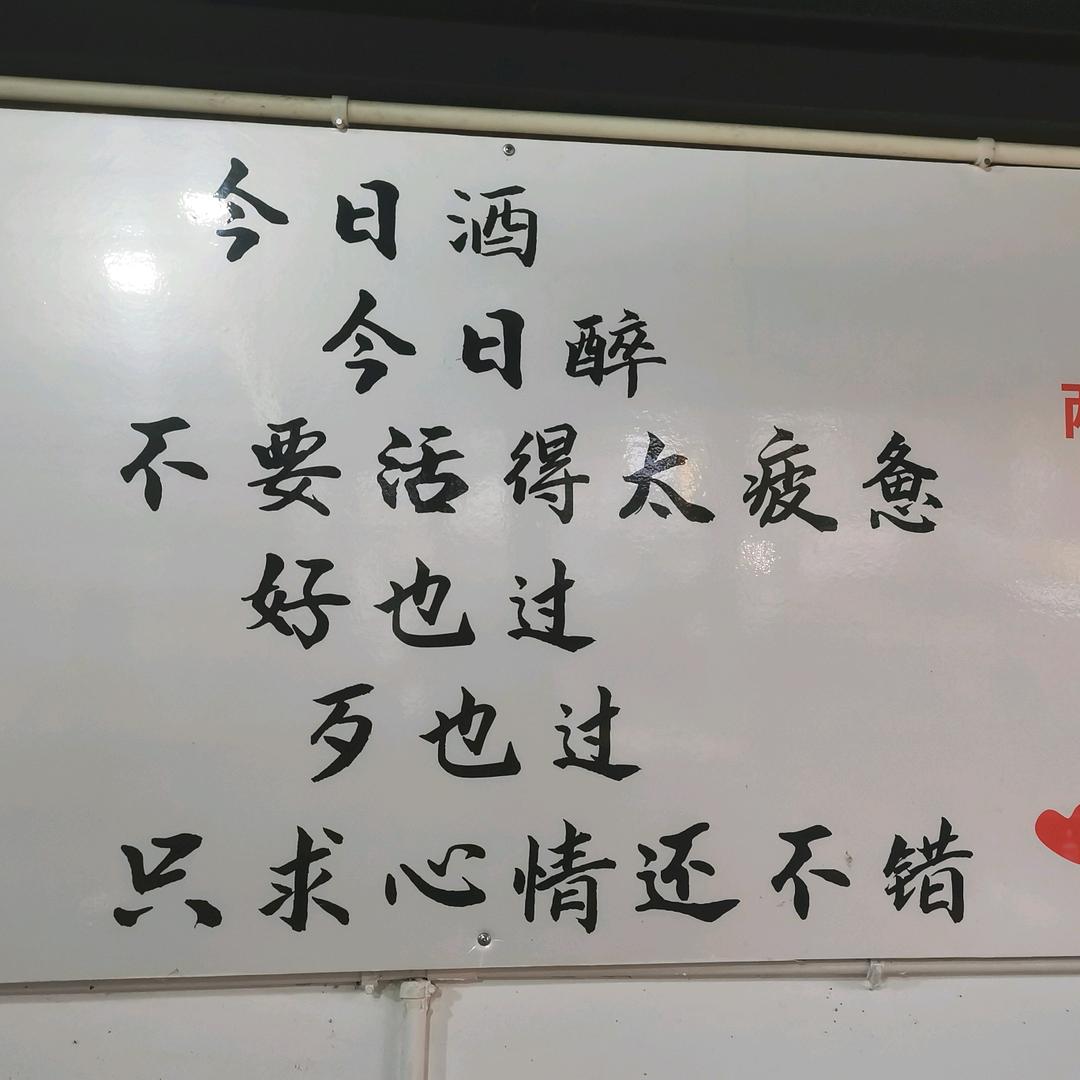 今日酒
今日醉
不要活得太疲惫
好也过
歹也过
只求心情还不错